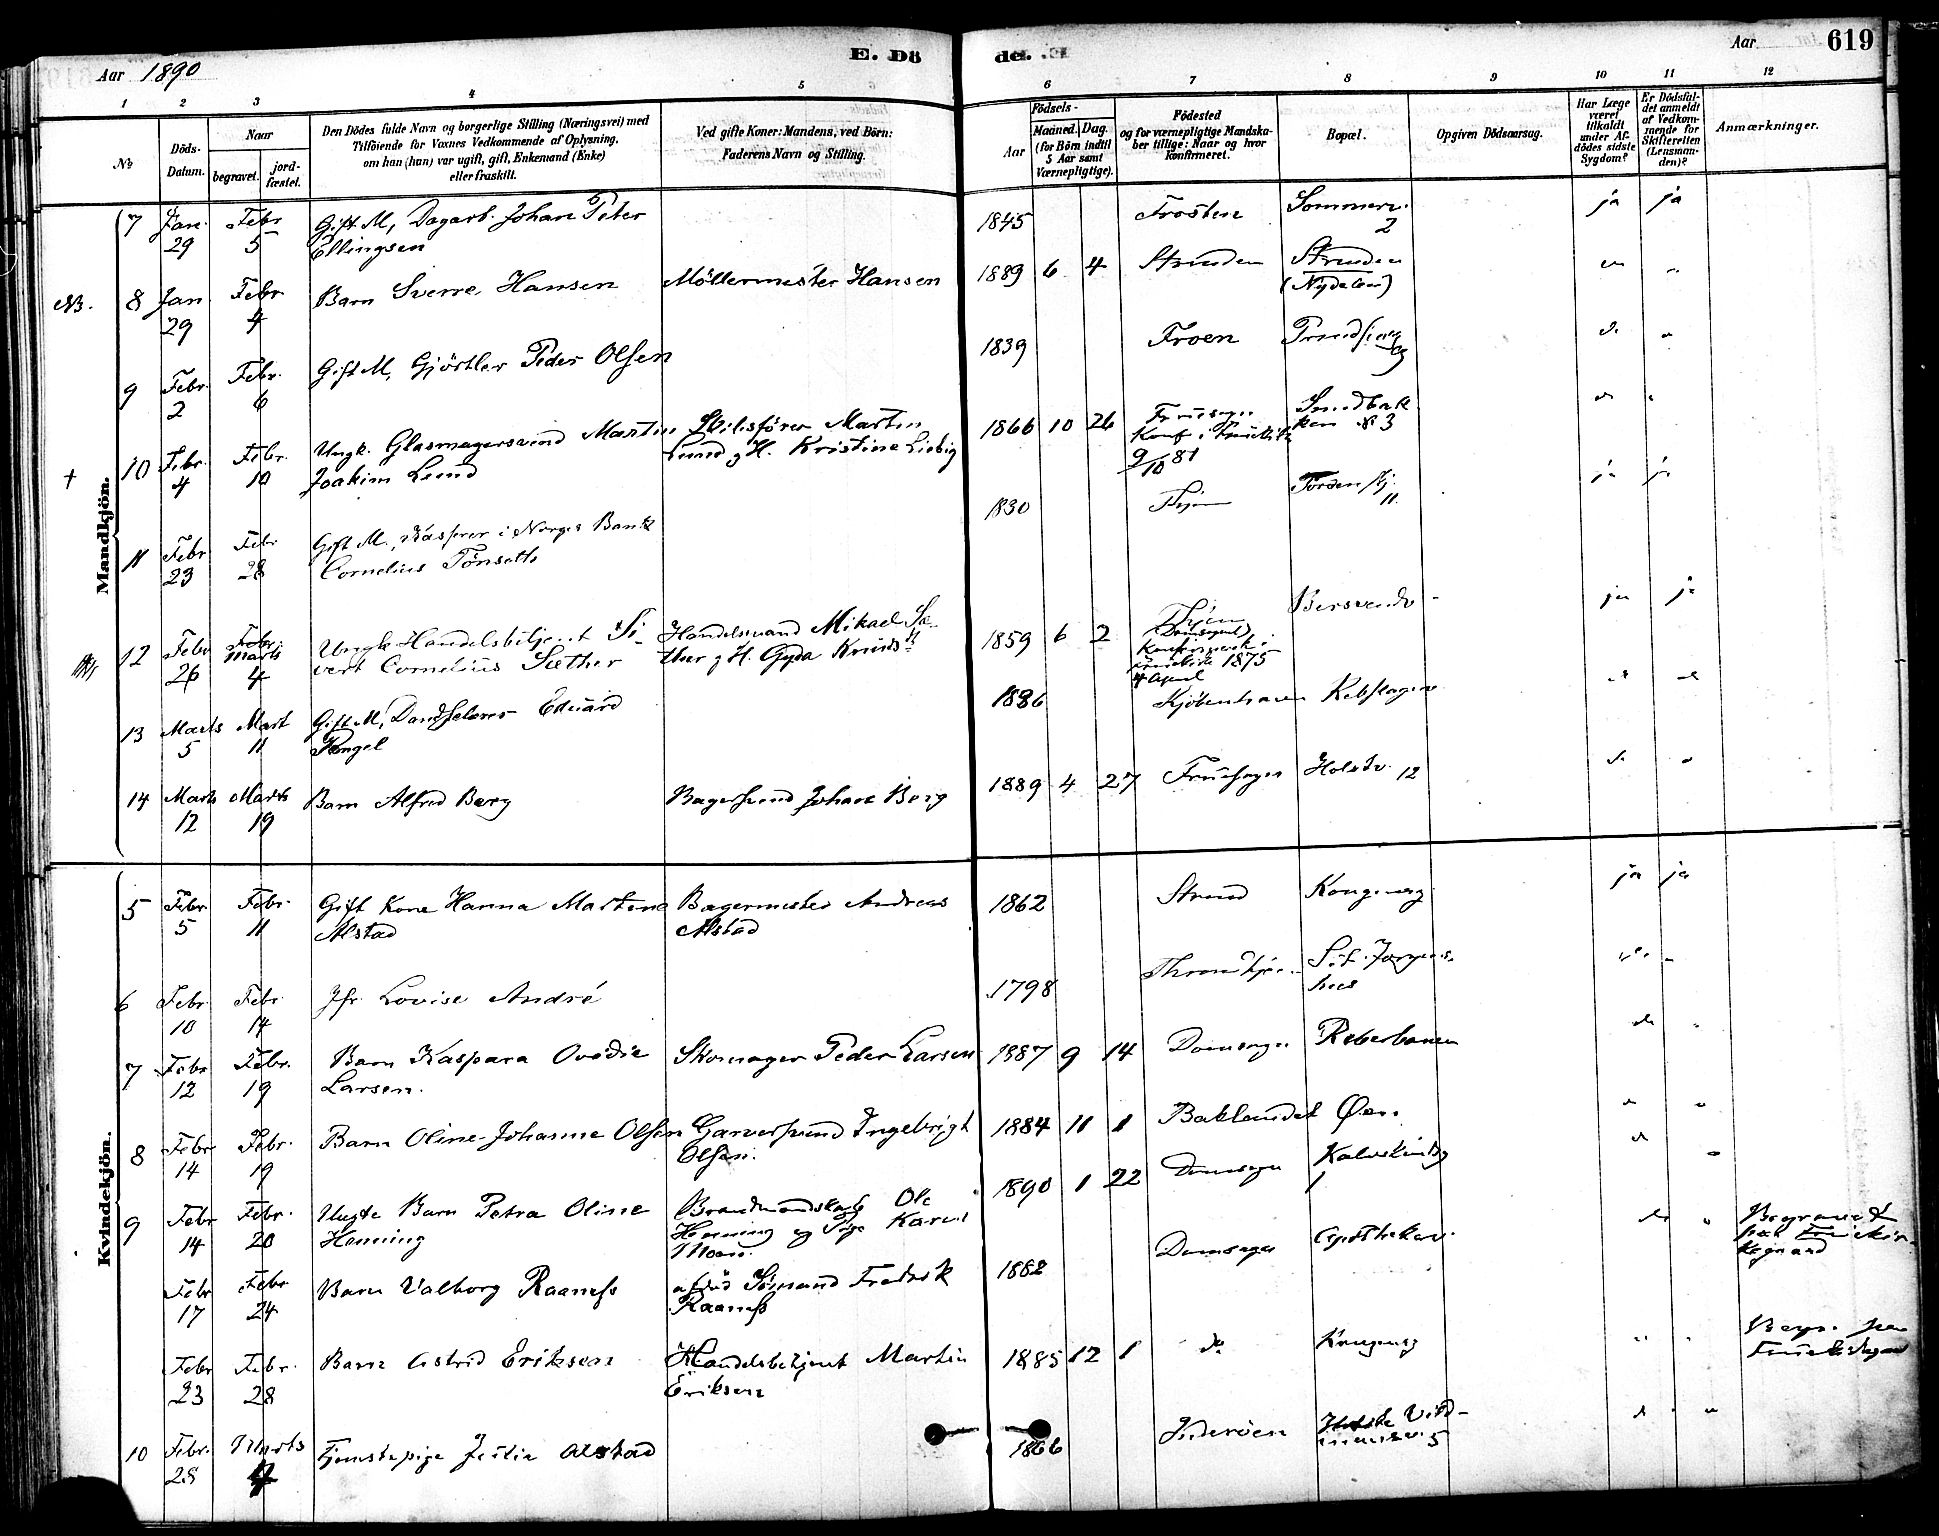 E. Dö
del. E
Aar 1890
Aar
619
1 2 3 4 5 6 7 8 9 10 11 12
No
Döds-
Datum.
Naar
begravet.
jord-
fæstet.
Den Dödes fulde Navn og borgerlige Stilling (Næringsvei) med
Tilföiende for Voxnes Vedkommende af Oplysning,
om han (hun) var ugift, gift, Enkemand (Enke)
eller fraskilt.
Ved gifte Koner: Mandens, ved Börn:
Faderens Navn og Stilling.
Födsels-
Aar
Maaned. Dag.
(for Börn indtil
5 Aar samt
Værnepligtige).
Födested
og for værnepligtige Mandska-
ber tillige: Naar og hvor
konfirmeret.
Bopæl.
Opgiven Dödsaarsag.
Har Læge
været
tilkaldt
under Af-
dödes sidste
Sygdom?
Er Dödsfal-
det anmeldt
af Vedkom-
mende for
Skifteretten
(Lensman-
den)?
Anmærkninger.
Mandkjön.
7 Jan. Febr Gift M, Dagarb. Johan Peter 1845 Frosten Sommerv. ja ja
29 5 Ellingsen 2
NB. 8 Jan. Febr Barn Sverre Hansen Möllermester Hansen 1889 6 4 Strinden Strinden
29 4 (Nydalen)
9 Febr. Febr. Gift M, Gjörtler Peder Olsen 1839 Froen
2 6
† 10 Febr. Febr. Ungk. Glasmagersvend Martin Skilsfører Martin 1866 10 26
4 10 Joakim Lund Lund g H. Kristine Liebig
9/10 81
11 Febr Febr Gift M., Kasserer i Norges Bank 1830 ja ja
23 28 Cornelius Tönseth 11
12 Febr Febr. Marts Ungk. Handelsbetjent Si- Handelsmand Mikael Sæ- 1859 6 2 ja ja
26 4 vert Cornelius Sæther ther g H. Gyda
1875
4 April
13 Marts Mart Gift M, Eduard 1836 Kjöbenhavn
5 11
14 Marts Marts Barn Alfred Berg Bagersvend Johan Berg 1889 4 27 Fruesogn Holstv. 12
12 19
Kvindekjön.
5 Febr Febr. Gift Kone Hanna Martine Bagermester Andreas 1862 Strind Kongensg ja ja
5 11 Alstad Alstad
6 Febr Febr Jfr. Lovise André 1798 Throndhjem St. Jørgens-
10 14 hus
7 Febr Febr. Barn Kaspara Ovedie Skomager Peder Larsen 1887 9 14 Domsogn Reberbanen
12 19 Larsen.
8 Febr Febr. Barn Oline Johanne Olsen Garversvend Ingebrigt 1884 11 1 Baklandet Øen.
14 19 Olsen.
9 Febr Febr. Uægte Barn Petra Oline Ole 1890 1 22 Domsogn Kalvskindsg
14 20 Henning Henning og Pige Karen 1
Moen.
Febr Febr Barn Valborg Raamss afdød Sömand Fredrik 1882 Domsogn Apothekerv. Begravet
17 24 Raamss paa
Febr Febr. Barn Astrid Eriksen Handelsbetjent Martin 1885 12 1 do Kongensg Begr. paa
23 28 Eriksen
10 Febr. Marts Tjenstepige Alstad 1866 Inderöen
28 5